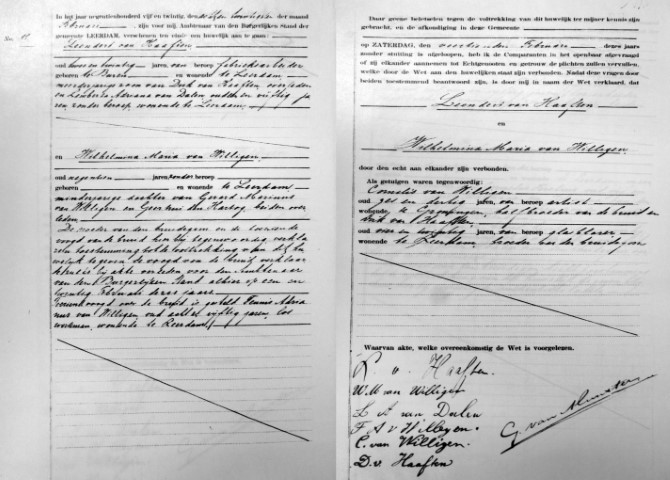 In het jaar negentienhonderd vijf en twintig, den
der maand
Februari, zijn voor mij, Ambtenaar van den Burgerlijken Stand der
No. 12
gemeente LEERDAM, verschenen ten einde een huwelijk aan te gaan:
Leendert van Haaften
oud twee en twintig jaren, van beroep fabrieksarbeider
geboren te Buren en wonende te Leerdam,
meerderjarige zoon van Dirk van Haaften, overleden
en Adriana van Dalen, oud zes en vijftig ja-
ren, zonder beroep, wonende te Leerdam,
en Wilhelmina Maria van Willigen,
oud negentien jaren, zonder beroep
geboren en wonende te Leerdam
minderjarige dochter van Gerard Marinus
van Willigen en Geertruida den Hartog, beiden over-
leden.
De moeder van den bruidegom en de toeziende
voogd van de bruid, hier bij tegenwoordig, verkla-
ren toestemming tot de voltrekking van dit hu-
welijk te geven, de voogd van de bruid verklaar-
de zulks bij akte verleden voor den Ambtenaar
van den Burgerlijken Stand alhier op een en
twintig Februari dezer jaars.
voogd over de bruid is gesteld Teunis Adria-
nus van Willigen, oud acht en vijftig jaren, los
werkman, wonende te Leerdam.
Daar geene beletselen tegen de voltrekking van dit huwelijk ter mijner kennis zijn
gebracht, en de afkondiging in deze Gemeente
op ZATERDAG, den veertienden Februari dezes jaars
zonder stuiting is afgeloopen, heb ik de Comparanten in het openbaar afgevraagd
of zij elkander aannemen tot Echtgenooten en getrouw de plichten zullen vervullen,
welke door de Wet aan den huwelijken staat zijn verbonden. Nadat deze vragen door
beiden toestemmend beantwoord zijn, is door mij in naam der Wet verklaard, dat
Leendert van Haaften
en
Wilhelmina Maria van Willigen
door den echt aan elkander zijn verbonden.
Als getuigen waren tegenwoordig:
Cornelis van Willigen
oud zes en dertig jaren, van beroep
wonende te Gorinchem, halfbroeder van de bruid en
Dirk van Haaften
oud een en twintig jaren, van beroep glasblazer,
wonende te Leerdam, broeder van den bruidegom
Waarvan akte, welke overeenkomstig de Wet is voorgelezen.
L. v. Haaften.
W M van Willigen
L A van Dalen
T A v Willegen.
C. van Willigen.
D. v. Haaften